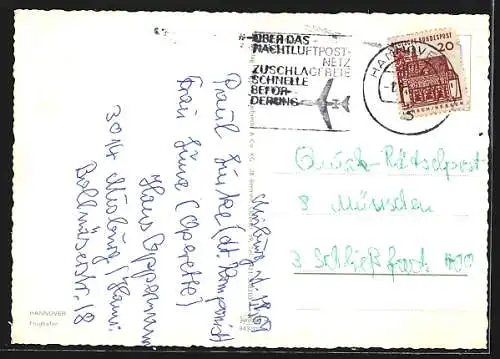 ÜBER DAS
NACHTLUFTPOST-
NETZ
ZUSCHLAGFREIE
SCHNELLE
BEFÖR-
DERUNG
HANNOVER
DEUTSCHE BUNDESPOST
20
LORSCH/HESSEN
Paul Lincke (dt. Komponist
Frau Luna (Operette)
Hans Oppermann
3014 Misburg/Hann.
Quick-Rätselpost
8 München
3 Schließfach 400
HANNOVER
Flughafen